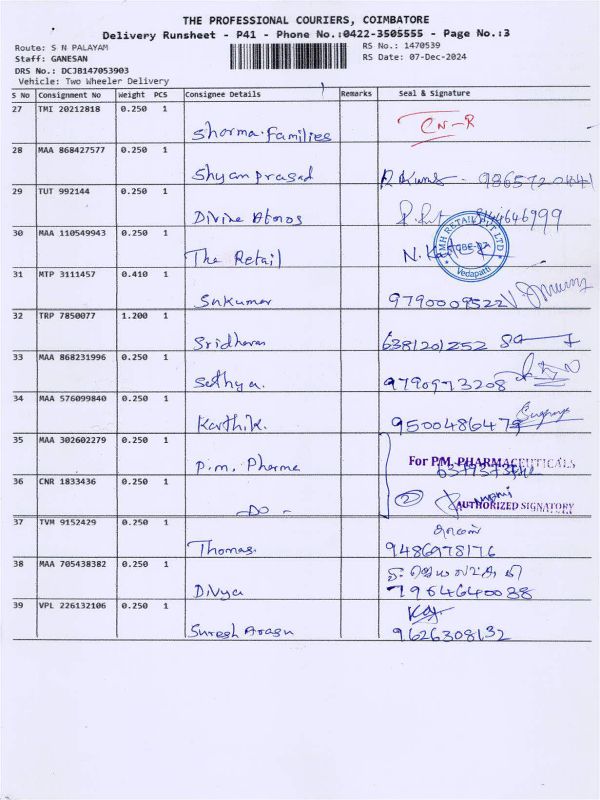 THE PROFESSIONAL COURIERS, COIMBATORE
Delivery Runsheet - P41 - Phone No.:0422-3505555 - Page No.:3
Route: S N PALAYAM RS No.: 1470539
Staff: GANESAN RS Date: 07-Dec-2024
DRS No.: DCJB147053903
Vehicle: Two Wheeler Delivery
S No Consignment No Weight PCS Consignee Details Remarks Seal & Signature
27 TMI 20212818 0.250 1
Sharma. Families CN-R
28 MAA 868427577 0.250 1
Shyam prasad
29 TUT 992144 0.250 1
Divine Stores
30 MAA 110549943 0.250 1
The Retail
MH RETAIL PVT LTD
Vedapatti
31 MTP 3111457 0.410 1
9790009522
32 TRP 7850077 1.200 1
Sridharan 6381201252
33 MAA 868231996 0.250 1
Sathya. 9790973208
34 MAA 576099840 0.250 1
Karthik.
35 MAA 302602279 0.250 1
P.M. Pharma For P.M. PHARMACEUTICALS
36 CNR 1833436 0.250 1
-DO- 2 AUTHORIZED SIGNATORY
37 TVM 9152429 0.250 1
Thomas. 9486978176
38 MAA 705438382 0.250 1
Divya
39 VPL 226132106 0.250 1
Suresh Arasu 9626308132